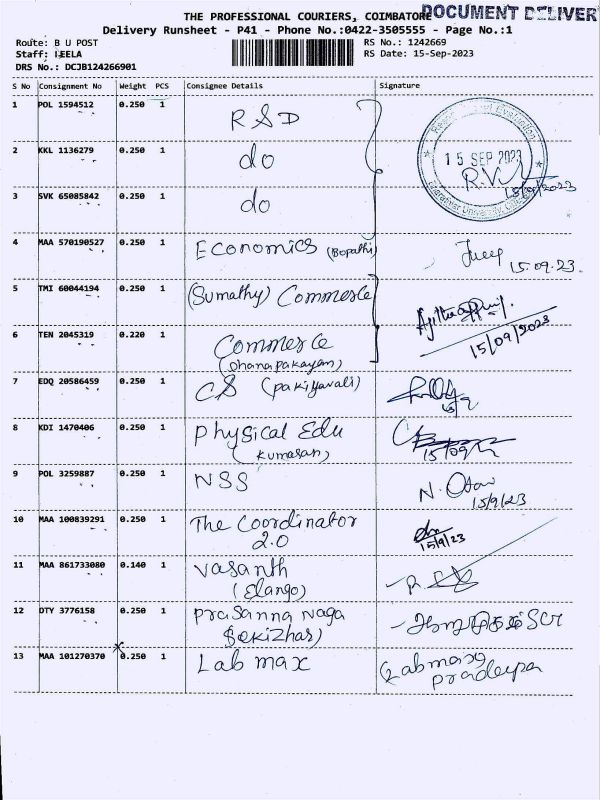 DOCUMENT DELIVER
THE PROFESSIONAL COURIERS, COIMBATORE
Delivery Runsheet - P41 - Phone No.:0422-3505555 - Page No.:1
Route: B U POST
RS No.: 1242669
Staff: LEELA
RS Date: 15-Sep-2023
DRS No.: DCJB124266901
S No Consignment No Weight PCS Consignee Details Signature
1 POL 1594512 0.250 1 RSD
15 SEP 2023
2 KKL 1136279 0.250 1 do
R.V
15/9/2023
3 SVK 65085842 0.250 1 do
4 MAA 570190527 0.250 1 Economics (Boopathi)
15.09.23.
5 TMI 60044194 0.250 1 (Sumathy) Commerce
15/09/2023
6 TEN 2045319 0.220 1 Commerce
(Dhanapakayam)
7 EDQ 20586459 0.250 1 CS (pakiyavali)
15/9
8 KDI 1470406 0.250 1 Physical Edu
(Kumasan)
15/09/
9 POL 3259887 0.250 1 NSS
15/9/23
10 MAA 100839291 0.250 1 The Coordinator
2.0
15/9/23
11 MAA 861733080 0.140 1 Vasanth
(Elango)
12 DTY 3776158 0.250 1 Prasanna Naga
Sekizhar)
13 MAA 101270370 0.250 1 Lab max
(Labmax
pradeepa